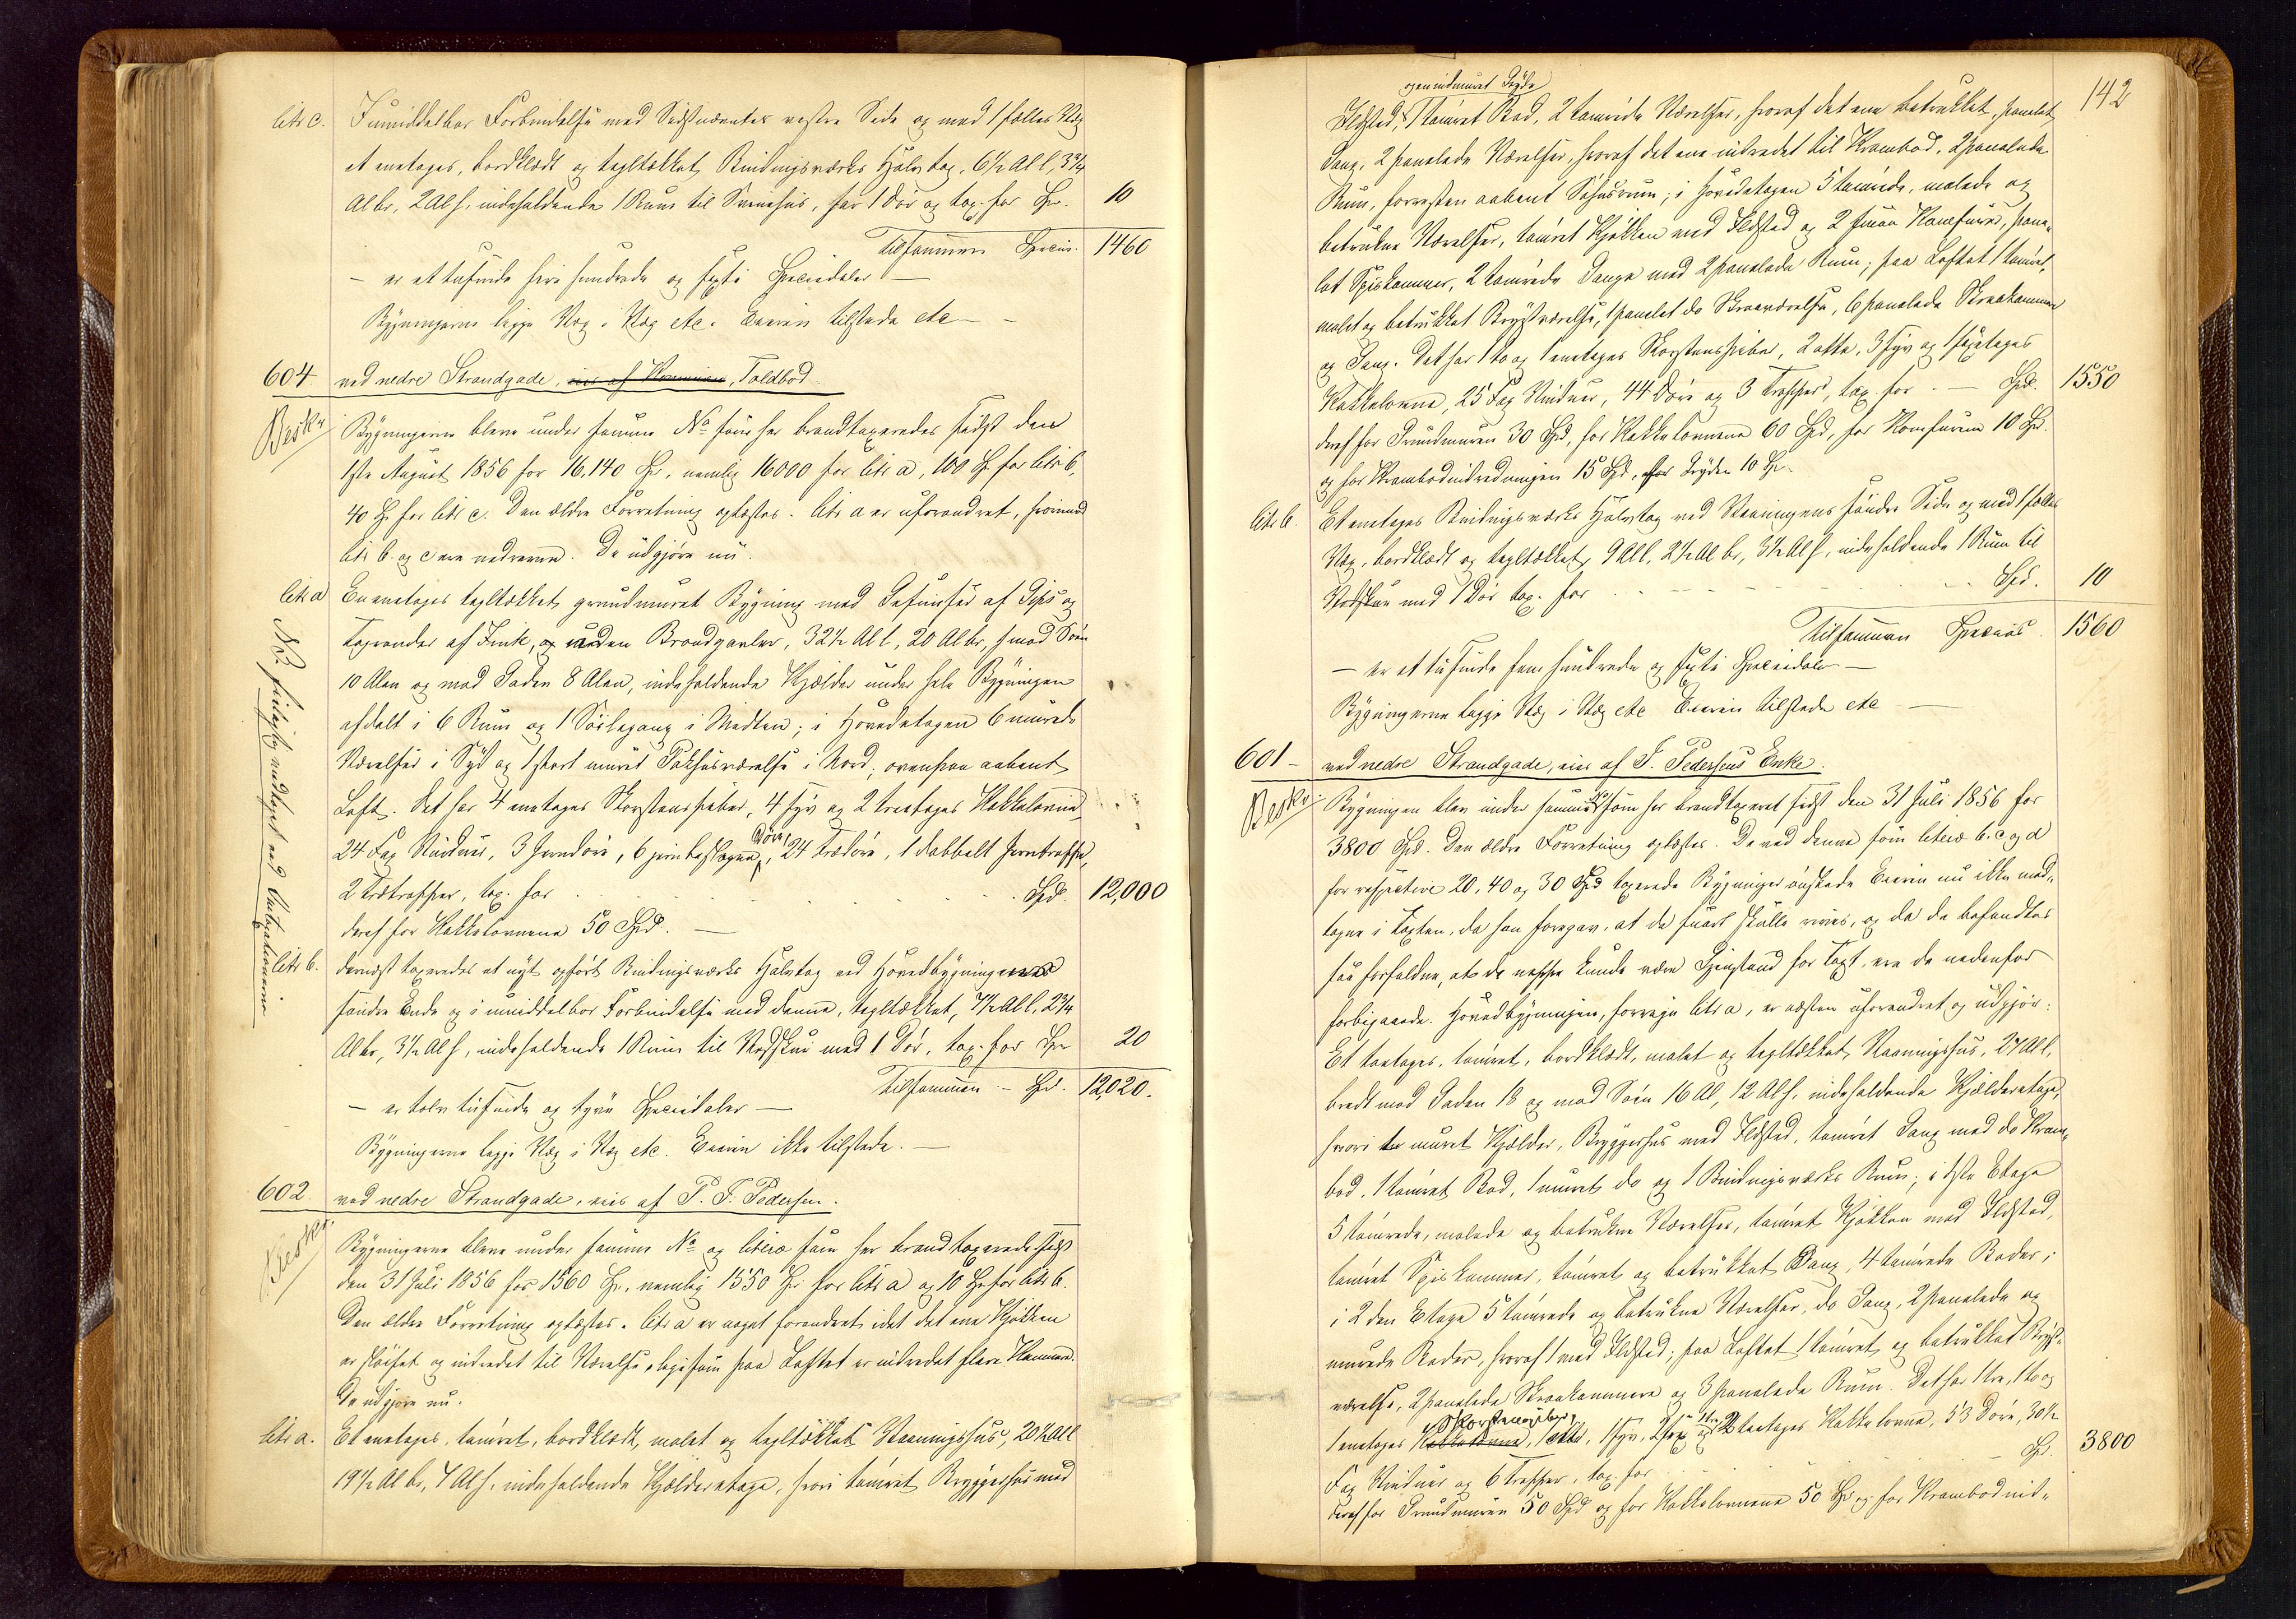 litr c. I umiddelbar Forbindelse med Sidstnævntes vestre Side og med 1 fælles Væg
et enetages, bordklædt og tegltækket Bindingsværks Halvtag, 6½ Al l, 3¾
Al br, 2 Al h, indeholdende 1 Rum til Svinehus, har 1 Dør og tax. for Spr. 10
Tilsammen Specier. 1460
– er et tusinde fire hundrede og sexti Speciedaler –
Bygningerne ligge Væg i Væg etc. Eieren tilstede etc –
604 ved nedre Strandgade, eies af Kommunen, Toldbod.
Beskr. Bygningerne bleve under samme No som her brandtaxeredes sidst den
1ste August 1856 for 16,140 Spr, nemlig 16000 for litr a, 100 Sp for litr b,
40 Sp for litr c. Den ældre Forretning oplæstes. litr a er uforandret, hvorimod
litr b. og c ere nedrevne. De udgjøre nu.
litr a En enetages tegltækket, grundmuret Bygning med Gesimser af Gips og
Tagrender af Zink, og uden Brandgavler, 32½ Al l, 20 Al br, h mod Søen
10 Alen og mod Gaden 8 Alen, indeholdende Kjælder under hele Bygningen
afdelt i 6 Rum og 1 Søilegang i Midten; i Hovedetagen 6 murede
Værelser i Syd og 1 stort muret Pakhusværelse i Nord; ovenpaa aabent
Loft. Det har 4 enetages Skorstenspiber, 4 syv og 2 treetages Kakkelovne,
24 Fag Vinduer, 3 Jerndøre, 6 jernbeslagne Døre, 24 Trædøre, 1 dobbelt Jerntrappe,
2 Trætrapper, tax. for Spd. 12,000
deraf for Kakkelovnene 50 Spd. –
litr b. dernæst taxeredes et nyt opført Bindingsværks Halvtag ved Hovedbygningens
søndre Ende og i umiddelbar Forbindelse med denne, tegltækket, 7½ Al l, 2¾
Al br, 3½ Al h, indeholdende 1 Rum til Vedskur med 1 Dør, tax. for Spr 20
Tilsammen – Spd. 12,020.
– er tolv tusinde og tyve Speciedaler –
Bygningerne ligge Væg i Væg etc. Eieren ikke tilstede. –
602. ved nedre Strandgade, eies af P. F. Pedersen.
Beskr. Bygningerne bleve under samme No og litera som her brandtaxerede sidst
den 31 Juli 1856 for 1560 Sp, nemlig 1550 Sp for litr a og 10 Sp for litr b.
Den ældre Forretning oplæstes. litr a er noget forandret, idet det ene Kjøkken
er sløifet og indredet til Værelse, ligesom paa Loftet er indredet flere Kammere.
De udgjøre nu.
litr a. Et enetages, tømret, bordklædt, malet og tegltækket Vaaningshus, 20½ Al l
19½ Al br, 7 Al h, indeholdende Kjælderetage, hvori tømret Bryggerhus med
142
og en indmuret Gryde
Ildsted, 1 tømret Bod, 2 tømrede Værelser, hvoraf det ene betrukket, panelet
Gang, 2 panelede Værelser, hvoraf det ene indredet til Krambod, 2 panelede
Rum, forresten aabent Søhusrum; i Hovedetagen 5 tømrede, malede og
betrukne Værelser, tømret Kjøkken med Ildsted og 2 smaa Komfurer, pane-
let Spiskammer, 2 tømrede Gange med 2 panelede Rum; paa Loftet 1 tømret,
malet og betrukket Brystværelse, 1 panelet do Skraaværelse, 6 panelede Skraakammere
og Gang. Det har 1 to og 1 enetages Skorstenspiber, 2 otte, 3 syv og 1 sexetages
Kakkelovne, 25 Fag Vinduer, 44 Døre og 3 Trapper, tax. for – Spd. 1550
deraf for Grundmuren 30 Spd, for Kakkelovnene 60 Spd, for Komfurene 10 Spd.
og for Krambodindredningen 15 Spd, for Gryden 10 Sp.
litr b. Et enetages Bindingsværks Halvtag ved Vaaningens søndre Side og med 1 fælles
Væg, bordklædt og tegltækket, 9 Al l, 2½ Al br, 3½ Al h, indeholdende 1 Rum til
Vedskur med 1 Dør tax. for Spd. 10
Tilsammen Species. 1560
– er et tusinde fem hundrede og sexti Speciedaler –
Bygningerne ligge Væg i Væg etc Eieren tilstede etc –
601 – ved nedre Strandgade, eies af F. Pedersens Enke.
Beskr. Bygningen blev under samme No som her brandtaxeret sidst den 31 Juli 1856 for
3800 Spd. Den ældre Forretning oplæstes. De ved denne som litera b. c og d
for respective 20, 40 og 30 Spd taxerede Bygninger ønskede Eieren nu ikke med-
tagne i Taxten, da han foregav, at de snart skulle rives, og da de befandtes
saa forfaldne, at de neppe kunde være Gjenstand for Taxt, ere de nedenfor
forbigaaede. Hovedbygningen, forrige litr a, er næsten uforandret og udgjør:
Et toetages, tømret, bordklædt, malet og tegltækket, Vaaningshus, 27 Al l,
bredt mod Gaden 18 og mod Søen 16 Al, 12 Al h, indeholdende Kjælderetage,
hvori er muret Kjælder, Bryggerhus med Ildsted, tømret Gang med do Kram-
bod, 1 tømret Bod, 1 muret do og 1 Bindingsværks Rum; i 1ste Etage
5 tømrede, malede og betrukne Værelser, tømret Kjøkken med Ildsted,
tømret Spiskammer, tømret og betrukket Gang, 4 tømrede Boder;
i 2den Etage 5 tømrede og betrukne Værelser, do Gang, 2 panelede og
murede Boder, hvoraf 1 med Ildsted; paa Loftet 1 tømret og betrukket Bryst-
værelse, 2 panelede Skraakammere og 3 panelede Rum. Det har 1 tre, 1 to og
1 enetages Kakkelovne Skorstenspiber, 1 otte, 1 syv, 2 sex og 2 toetages Kakkelovne, 53 Døre, 30½
Fag Vinduer og 6 Trapper, tax. for Sp. 3800
deraf for Grundmuren 50 Spd og for Kakkelovnene 50 Sp og for Krambodind-